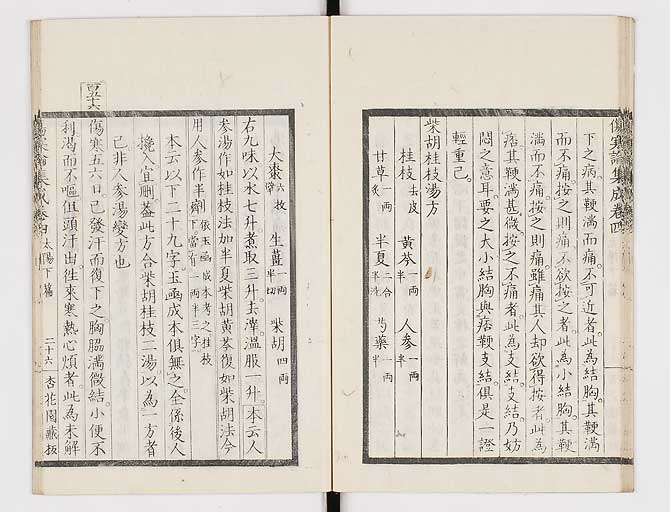 傷寒論集成卷四
下之病其鞕滿而痛不可近者此爲結胸其鞕滿
而不痛按之則痛不欲按之者此爲小結胸其鞕
滿而不痛按之則痛雖痛其人却欲得按者此爲
痞其鞕滿甚微按之不痛者此爲支結支結乃妨
悶之意耳要之大小結胸與痞鞕支結俱是一證
輕重已
柴胡桂枝湯方
桂枝去皮 黃芩一兩半 人參一兩半
甘草一兩炙 半夏二合半洗 芍藥一兩半
大棗六枚擘 生薑一兩半切 柴胡四兩
右九味以水七升煮取三升去滓溫服一升本云人
參湯作如桂枝法加半夏柴胡黃芩復如柴胡法今
用人參作半劑依玉函成本考之桂枝下當有一兩半三字
本云以下二十九字玉函成本俱無之全係後人
攙入宜刪蓋此方合柴胡桂枝二湯以爲一方者
已非人參湯變方也
百五十六
傷寒五六日已發汗而復下之胸脇滿微結小便不
利渴而不嘔但頭汗出往來寒熱心煩者此爲未解
傷寒論集成卷四 太陽下篇 二十六 杏花園藏板